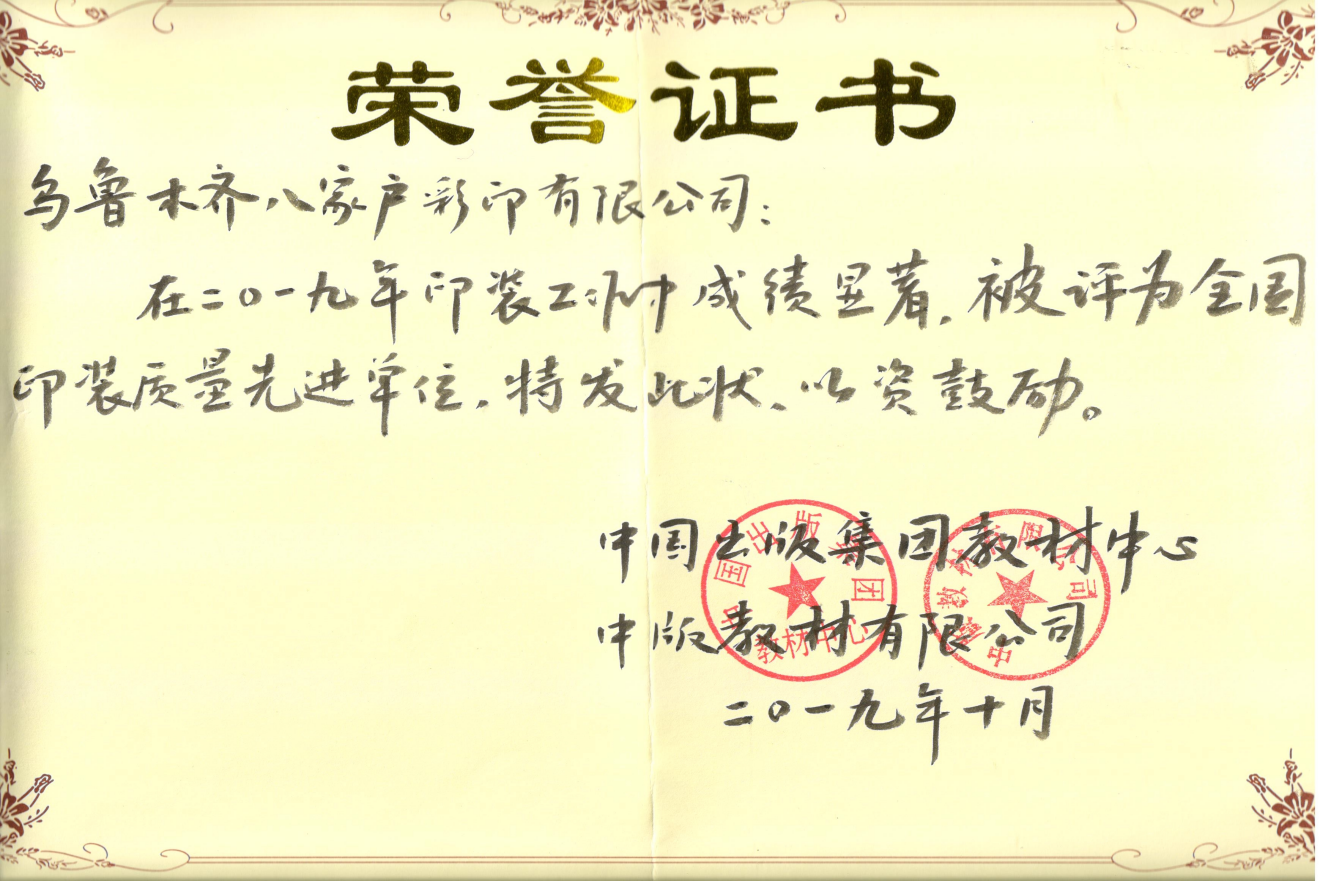 荣誉证书
乌鲁木齐八家户彩印有限公司：
在二〇一九年印装工作中成绩显著，被评为全国
印装质量先进单位，特发此状，以资鼓励。
中国出版集团教材中心
中版教材有限公司
二〇一九年十月
中国出版集团
教材中心
中版教材有限公司